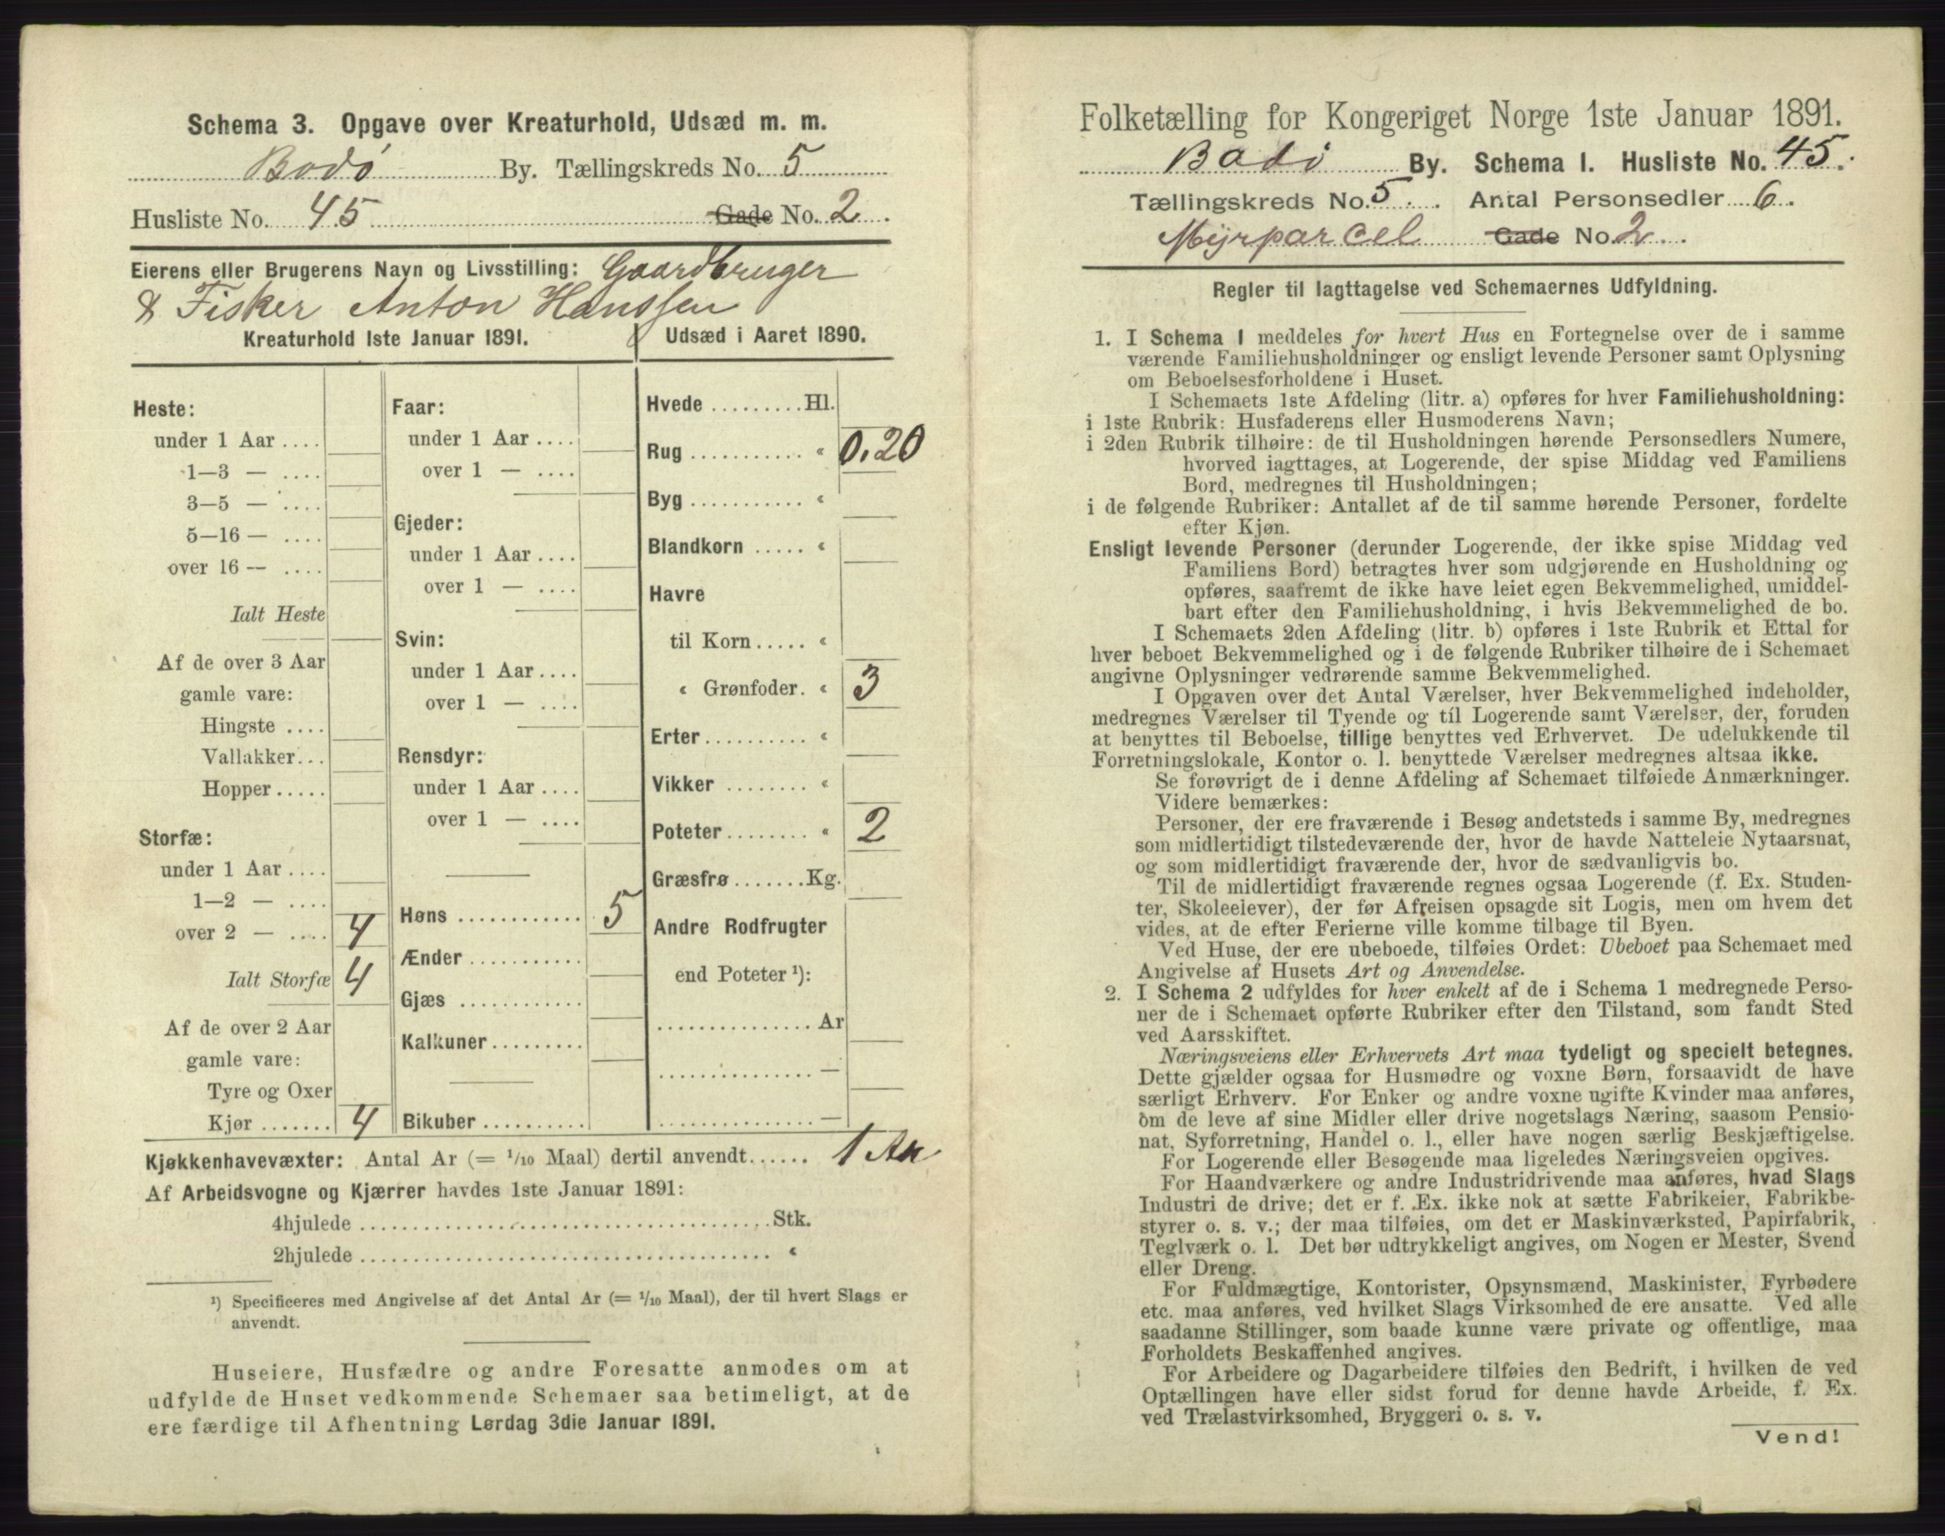 Schema 3. Opgave over Kreaturhold, Udsæd m. m.
Bodø By. Tællingskreds No. 5
Husliste No. 45 Gade No. 2
Eierens eller Brugerens Navn og Livsstilling: Gaardbruger
& Fisker Anton Hanssen
Kreaturhold 1ste Januar 1891.
Heste:
under 1 Aar ....
1—3 — ....
3—5 — ....
5—16 — ....
over 16 — ....
Ialt Heste
Af de over 3 Aar
gamle vare:
Hingste ....
Vallakker...
Hopper .....
Storfæ:
under 1 Aar ....
1—2 — ....
over 2 — .... 4
Ialt Storfæ 4
Af de over 2 Aar
gamle vare:
Tyre og Oxer
Kjør ....... 4
Faar:
under 1 Aar ....
over 1 — ....
Gjeder:
under 1 Aar ....
over 1 — ....
Svin:
under 1 Aar ....
over 1 — ....
Rensdyr:
under 1 Aar ....
over 1 — ....
Høns ............ 5
Ænder ...........
Gjæs ............
Kalkuner.........
Bikuber ..........
Udsæd i Aaret 1890.
Hvede .........Hl.
Rug ........... “ 0.20
Byg ........... “
Blandkorn ..... “
Havre
til Korn ..... “
“ Grønfoder. “ 3
Erter.......... “
Vikker ........ “
Poteter........ “ 2
Græsfrø.......Kg.
Andre Rodfrugter
end Poteter ¹):
............... Ar
............... —
............... —
Kjøkkenhavevæxter: Antal Ar (= 1/10 Maal) dertil anvendt...... 1 Ar
Af Arbeidsvogne og Kjærrer havdes 1ste Januar 1891:
4hjulede ........................................ Stk.
2hjulede ........................................ “
¹) Specificeres med Angivelse af det Antal Ar (= 1/10 Maal), der til hvert Slags er
anvendt.
Huseiere, Husfædre og andre Foresatte anmodes om at
udfylde de Huset vedkommende Schemaer saa betimeligt, at de
ere færdige til Afhentning Lørdag 3die Januar 1891.
Folketælling for Kongeriget Norge 1ste Januar 1891.
Bodø By. Schema I. Husliste No. 45.
Tællingskreds No. 5. Antal Personsedler 6.
Myrparcel Gade No. 2
Regler til Iagttagelse ved Schemaernes Udfyldning.
1. I Schema I meddeles for hvert Hus en Fortegnelse over de i samme
værende Familiehusholdninger og ensligt levende Personer samt Oplysning
om Beboelsesforholdene i Huset.
I Schemaets 1ste Afdeling (litr. a) opføres for hver Familiehusholdning:
i 1ste Rubrik: Husfaderens eller Husmoderens Navn;
i 2den Rubrik tilhøire: de til Husholdningen hørende Personsedlers Numere,
hvorved iagttages, at Logerende, der spise Middag ved Familiens
Bord, medregnes til Husholdningen;
i de følgende Rubriker: Antallet af de til samme hørende Personer, fordelte
efter Kjøn.
Ensligt levende Personer (derunder Logerende, der ikke spise Middag ved
Familiens Bord) betragtes hver som udgjørende en Husholdning og
opføres, saafremt de ikke have leiet egen Bekvemmelighed, umiddel-
bart efter den Familiehusholdning, i hvis Bekvemmelighed de bo.
I Schemaets 2den Afdeling (litr. b) opføres i 1ste Rubrik et Ettal for
hver beboet Bekvemmelighed og i de følgende Rubriker tilhøire de i Schemaet
angivne Oplysninger vedrørende samme Bekvemmelighed.
I Opgaven over det Antal Værelser, hver Bekvemmelighed indeholder,
medregnes Værelser til Tyende og til Logerende samt Værelser, der, foruden
at benyttes til Beboelse, tillige benyttes ved Erhvervet. De udelukkende til
Forretningslokale, Kontor o. l. benyttede Værelser medregnes altsaa ikke.
Se forøvrigt de i denne Afdeling af Schemaet tilføiede Anmærkninger.
Videre bemærkes:
Personer, der ere fraværende i Besøg andetsteds i samme By, medregnes
som midlertidigt tilstedeværende der, hvor de havde Natteleie Nytaarsnat,
og som midlertidigt fraværende der, hvor de sædvanligvis bo.
Til de midlertidigt fraværende regnes ogsaa Logerende (f. Ex. Studen-
ter, Skoleelever), der før Afreisen opsagde sit Logis, men om hvem det
vides, at de efter Ferierne ville komme tilbage til Byen.
Ved Huse, der ere ubeboede, tilføies Ordet: Ubeboet paa Schemaet med
Angivelse af Husets Art og Anvendelse.
2. I Schema 2 udfyldes for hver enkelt af de i Schema 1 medregnede Perso-
ner de i Schemaet opførte Rubriker efter den Tilstand, som fandt Sted
ved Aarsskiftet.
Næringsveiens eller Erhvervets Art maa tydeligt og specielt betegnes.
Dette gjælder ogsaa for Husmødre og voxne Børn, forsaavidt de have
særligt Erhverv. For Enker og andre voxne ugifte Kvinder maa anføres,
om de leve af sine Midler eller drive nogetslags Næring, saasom Pensio-
nat, Syforretning, Handel o. l., eller have nogen særlig Beskjæftigelse.
For Logerende eller Besøgende maa ligeledes Næringsveien opgives.
For Haandværkere og andre Industridrivende maa anføres, hvad Slags
Industri de drive; det er f. Ex. ikke nok at sætte Fabrikeier, Fabrikbe-
styrer o. s. v.; der maa tilføies, om det er Maskinværksted, Papirfabrik,
Teglværk o. l. Det bør udtrykkeligt angives, om Nogen er Mester, Svend
eller Dreng.
For Fuldmægtige, Kontorister, Opsynsmænd, Maskinister, Fyrbødere
etc. maa anføres, ved hvilket Slags Virksomhed de ere ansatte. Ved alle
saadanne Stillinger, som baade kunne være private og offentlige, maa
Forholdets Beskaffenhed angives.
For Arbeidere og Dagarbeidere tilføies den Bedrift, i hvilken de ved
Optællingen have eller sidst forud for denne havde Arbeide, f. Ex.
ved Trælastvirksomhed, Bryggeri o. s. v.
Vend!